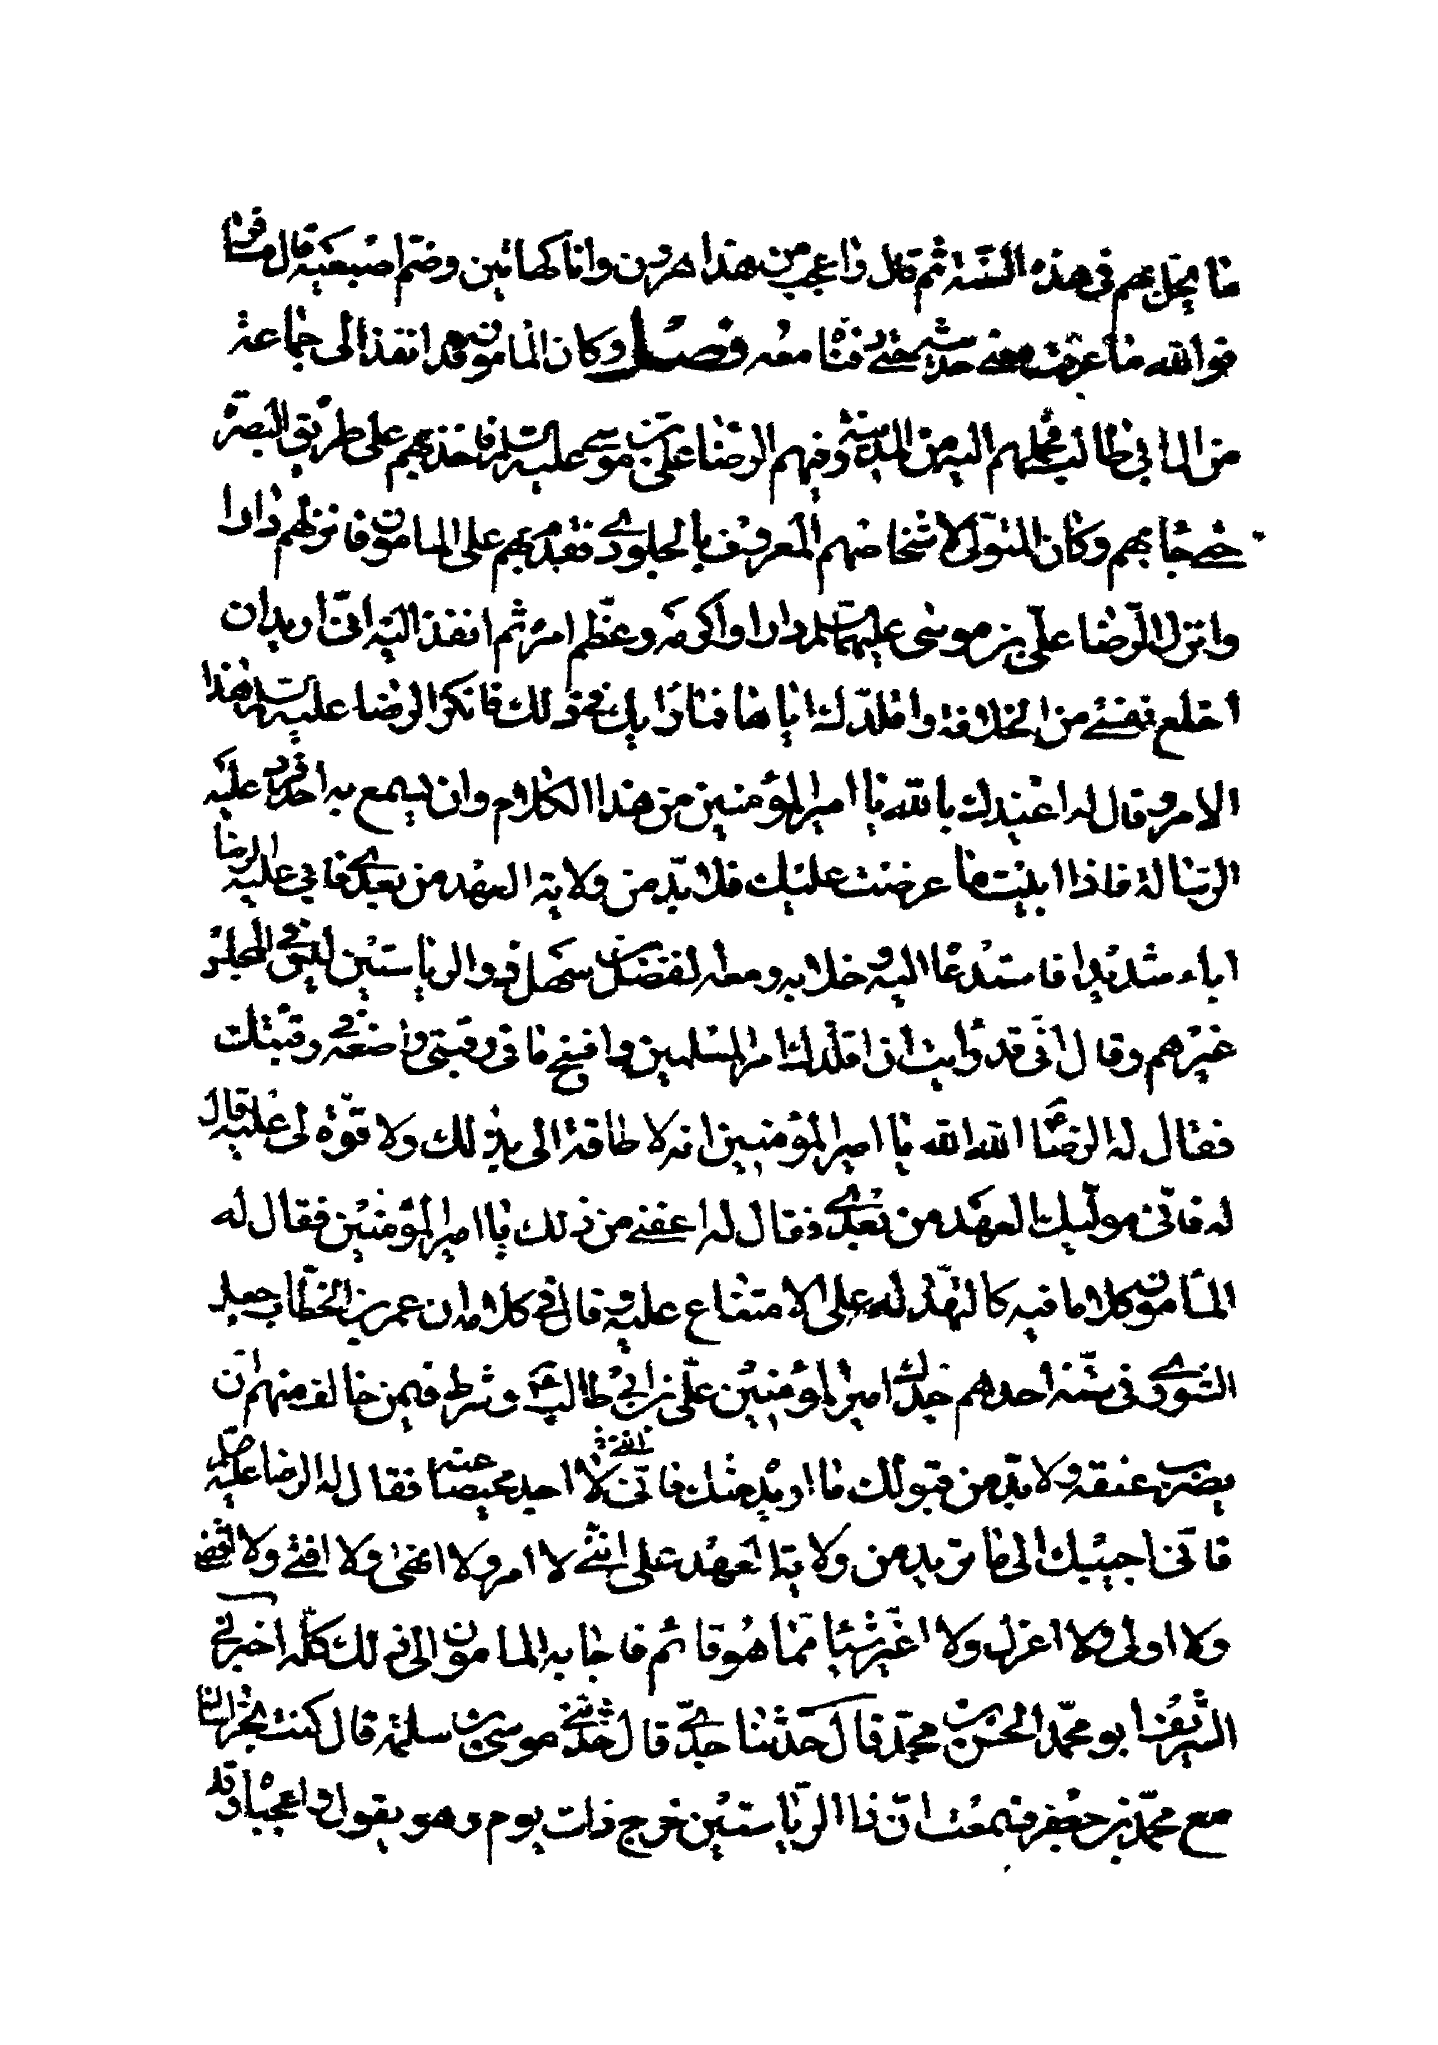 ما يحل بهم في هذه السنة ثم قال واعجب من هذا هرون وانا كهاتين وضم اصبعيه قال مسافر
فوالله ما عرفت معنى حديثه حتى دفناه معه فصل وكان المامون قد انفذ الى جماعة
من ال ابي طالب فحملهم اليه من المدينة وفيهم الرضا علي بن موسى عليه السلم فاخذ بهم على طريق البصرة
حتى جاء بهم وكان المتولي لاشخاصهم المعروف بالجلودي فقدم بهم على المامون فانزلهم دارا
وانزل الرضا علي بن موسى عليهما السلم دارا واكرمه وعظم امره ثم انفذ اليه اني اريد ان
اخلع نفسي من الخلافة واقلدك اياها فما رايك في ذلك فانكر الرضا عليه السلم هذا
الامر وقال له اعيذك بالله يا امير المؤمنين من هذا الكلام وان يسمع به احد فرد عليه
الرسالة فاذا ابيت ما عرضت عليك فلا بد من ولاية العهد من بعدي فابي عليه الرضا
اباء شديدا فاستدعاه اليه وخلا به ومعه الفضل بن سهل ذو الرياستين ليس في المجلس
غيرهم وقال اني قد رايت ان اقلدك امر المسلمين وافسخ ما في رقبتي واضعه في رقبتك
فقال له الرضا الله الله يا امير المؤمنين انه لا طاقة لي بذلك ولا قوة لي عليه قال
له فاني موليك العهد من بعدي فقال له اعفني من ذلك يا امير المؤمنين فقال له
المامون كلاما فيه كالتهدد له على الامتناع عليه وقال في كلامه ان عمر بن الخطاب جعل
الشورى في ستة احدهم جدك امير المؤمنين علي بن ابي طالب وشرط فيمن خالف منهم ان
يضرب عنقه ولا بد من قبولك ما اريد منك فانني لا اجد محيصا عنه فقال له الرضا عليه
فاني اجيبك الى ما تريد من ولاية العهد على انني لا امر ولا انهى ولا افتي ولا اقضي
ولا اولى ولا اعزل ولا اغير شيئا مما هو قائم فاجابه المامون الى ذلك كله اخبرني
الشريف ابو محمد الحسن بن محمد قال حدثنا جدي قال حدثني موسى بن سلمة قال كنت بخراسان
مع محمد بن جعفر فسمعت ان ذا الرياستين خرج ذات يوم وهو يقول واعجباه وقد